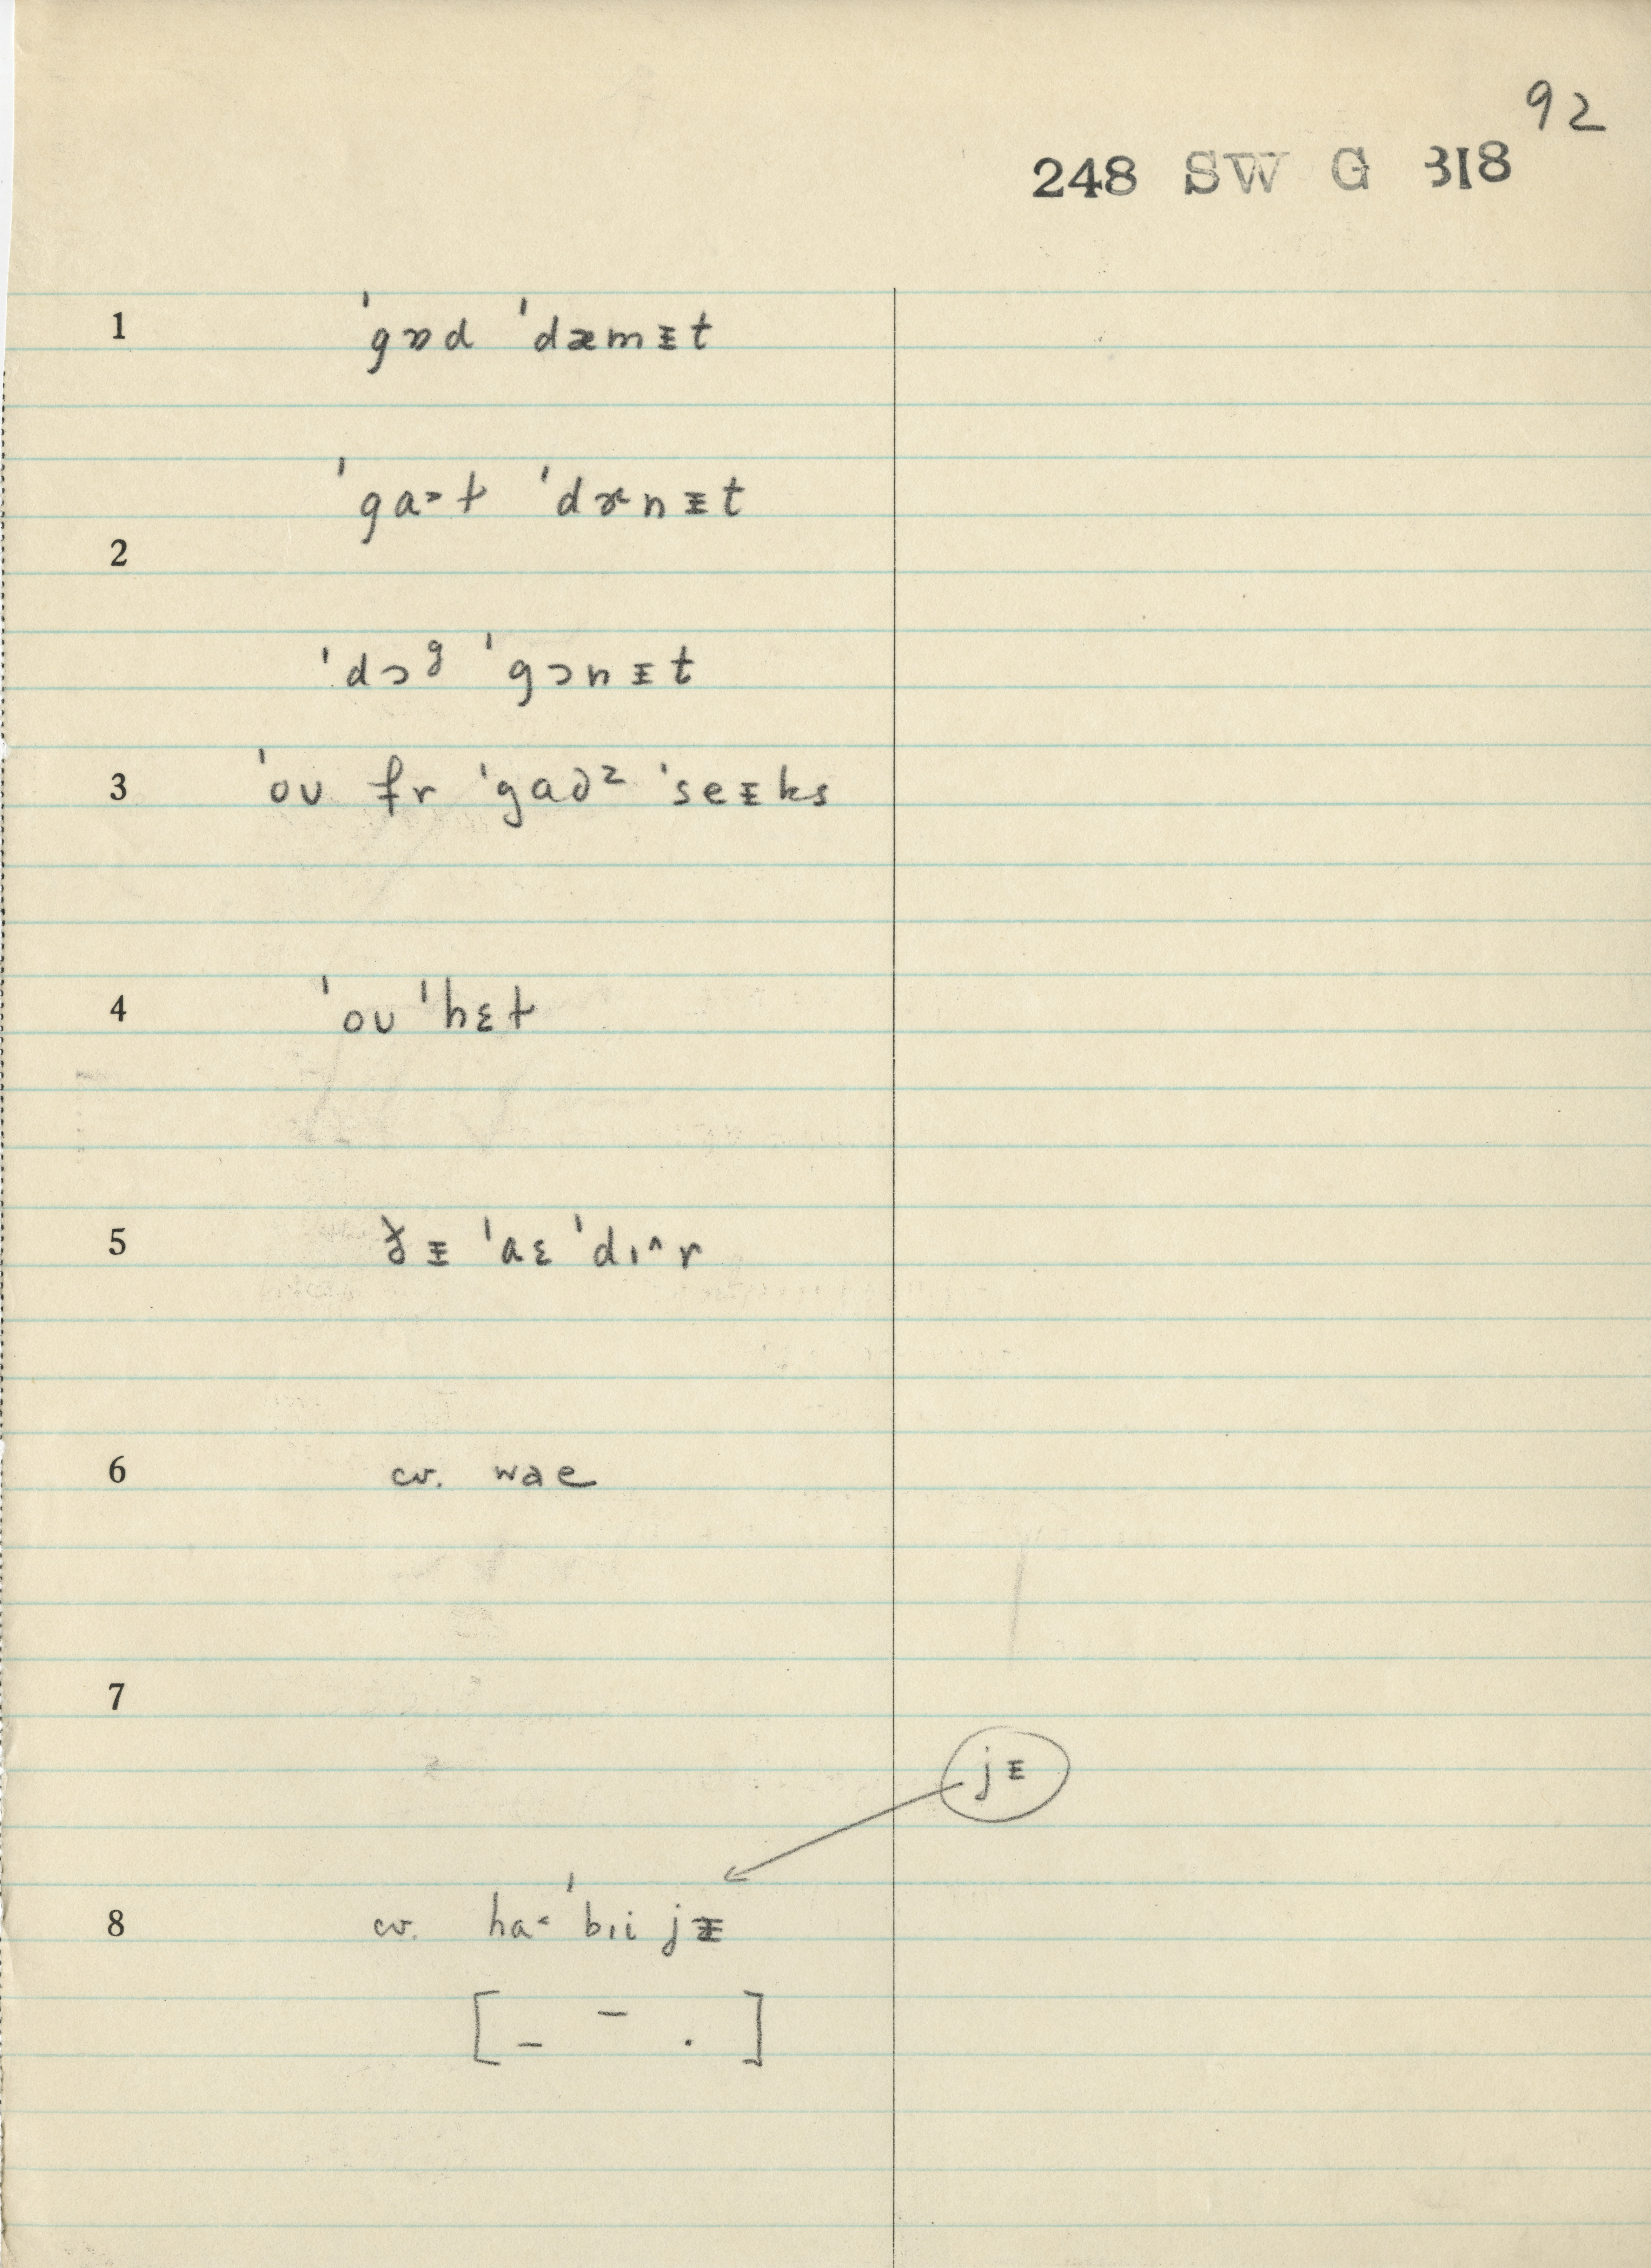 92
248 SW G 318
1 ˈgɒd ˈdæmᵻt
ˈga˃ɫ ˈdɤnᵻt
2
ˈdɔᶢ ˈgɔnᵻt
3 ˈoʊ fr ˈgaə² ˈseᵻks
4 ˈoʊ ˈhɛɫ
5 ɟᵻ ˈaɛ ˈdɪ˄r
6 cv. wae
7
jᵻ
8 cv. ha˂ ˈbɪi jᵻ
[ _ – . ]